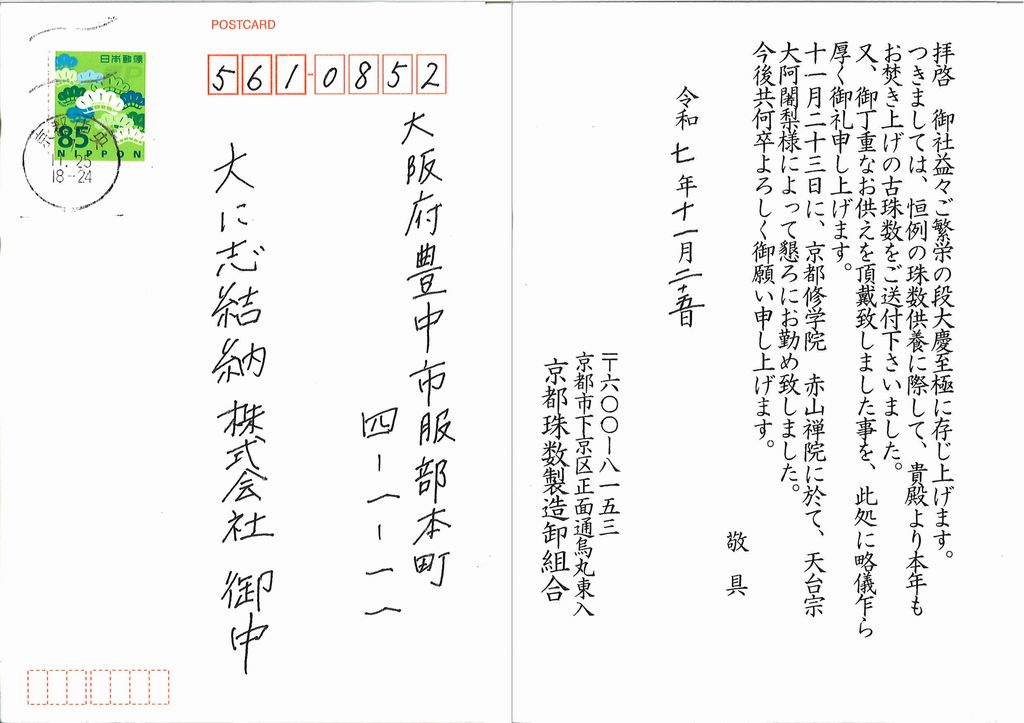 POSTCARD
日本郵便
85
NIPPON
11.25
18-24
561-0852
大阪府豊中市服部本町
四-一-一一
大に志結納 株式会社 御中
拝啓 御社益々ご繁栄の段大慶至極に存じ上げます。
つきましては、恒例の珠数供養に際して、貴殿より本年も
お焚き上げの古珠数をご送付下さいました。
又、御丁重なお供えを頂戴致しました事を、此処に略儀乍ら
厚く御礼申し上げます。
十一月二十三日に、京都修学院 赤山禅院に於て、天台宗
大阿闍梨様によって懇ろにお勤め致しました。
今後共何卒よろしく御願い申し上げます。
敬具
令和七年十一月二十五日
〒六〇〇-八一五三
京都市下京区正面通烏丸東入
京都珠数製造卸組合